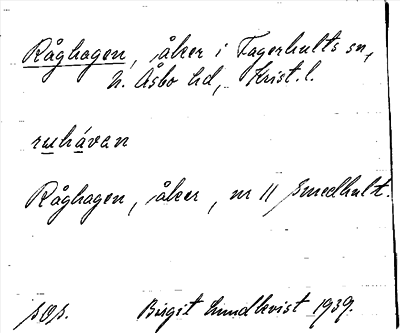 Råghagen, åker i Fagerhults sn,
N. Åsbo hd, Krist. l.
ruhávan
Råghagen, åker, nr 11 Smedhult.
Birgit Lundkvist 1939.